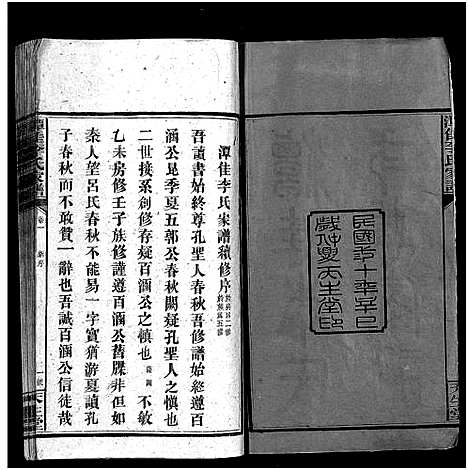 民國三十年辛巳
歲仲夏天生堂印
潭佳李氏家譜續修序
吾讀書始終尊孔聖人春秋吾修譜始終遵百
涵公昆季夏五郭公春秋闕疑孔聖人之愼也
二世接系創修存疑百涵公之愼也 不敏
乙未房修壬子族修謹遵百涵公舊牒非但如
秦人望呂氏春秋不能易一字實猶游夏讀孔
子春秋而不敢贊一辭也吾誠百涵公信徒哉
潭佳李氏家譜
卷一